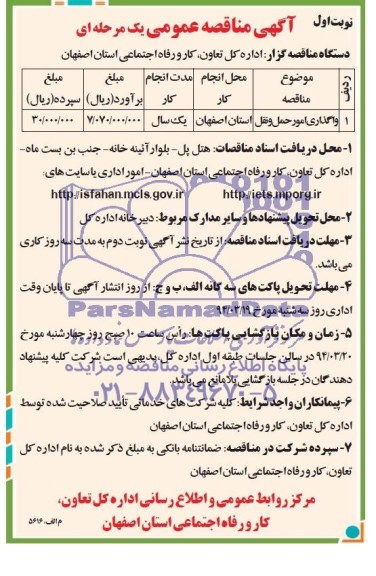 نوبت اول
آگهی مناقصه عمومی یک مرحله ای
دستگاه مناقصه گزار: اداره کل تعاون، کار و رفاه اجتماعی استان اصفهان
ردیف | موضوع مناقصه | محل انجام کار | مدت انجام کار | مبلغ برآورد(ریال) | مبلغ سپرده(ریال)
۱ | واگذاری امور حمل و نقل | استان اصفهان | یک سال | ۷/۰۷۰/۰۰۰/۰۰۰ | ۳۰/۰۰۰/۰۰۰
۱- محل دریافت اسناد مناقصات: هتل پل- بلوار آئینه خانه- جنب بن بست ماه-
اداره کل تعاون، کار و رفاه اجتماعی استان اصفهان- امور اداری یا سایت های:
http://iets.mporg.ir http://isfahan.mcls.gov.ir
۲- محل تحویل پیشنهادها و سایر مدارک مربوط: دبیرخانه اداره کل
۳- مهلت دریافت اسناد مناقصه: از تاریخ نشر آگهی نوبت دوم به مدت سه روز کاری
می باشد.
۴- مهلت تحویل پاکت های سه گانه الف، ب و ج: از روز انتشار آگهی تا پایان وقت
اداری روز سه شنبه مورخ ۹۴/۰۳/۱۹
۵- زمان و مکان بازگشایی پاکت ها: رأس ساعت ۱۰ صبح روز چهارشنبه مورخ
۹۴/۰۳/۲۰ در سالن جلسات طبقه اول اداره کل، بدیهی است شرکت کلیه پیشنهاد
دهندگان در جلسه بازگشایی بلامانع می باشد.
۶- پیمانکاران واجد شرایط: کلیه شرکت های خدماتی تأیید صلاحیت شده توسط
اداره کل تعاون، کار و رفاه اجتماعی استان اصفهان
۷- سپرده شرکت در مناقصه: ضمانتنامه بانکی به مبلغ ذکر شده به نام اداره کل
تعاون، کار و رفاه اجتماعی استان اصفهان
مرکز روابط عمومی و اطلاع رسانی اداره کل تعاون،
کار و رفاه اجتماعی استان اصفهان
م الف: ۵۶۱۶
ParsNamadData
پایگاه اطلاع رسانی مناقصه و مزایده
۰۲۱-۸۸۳۴۹۶۷۰-۵